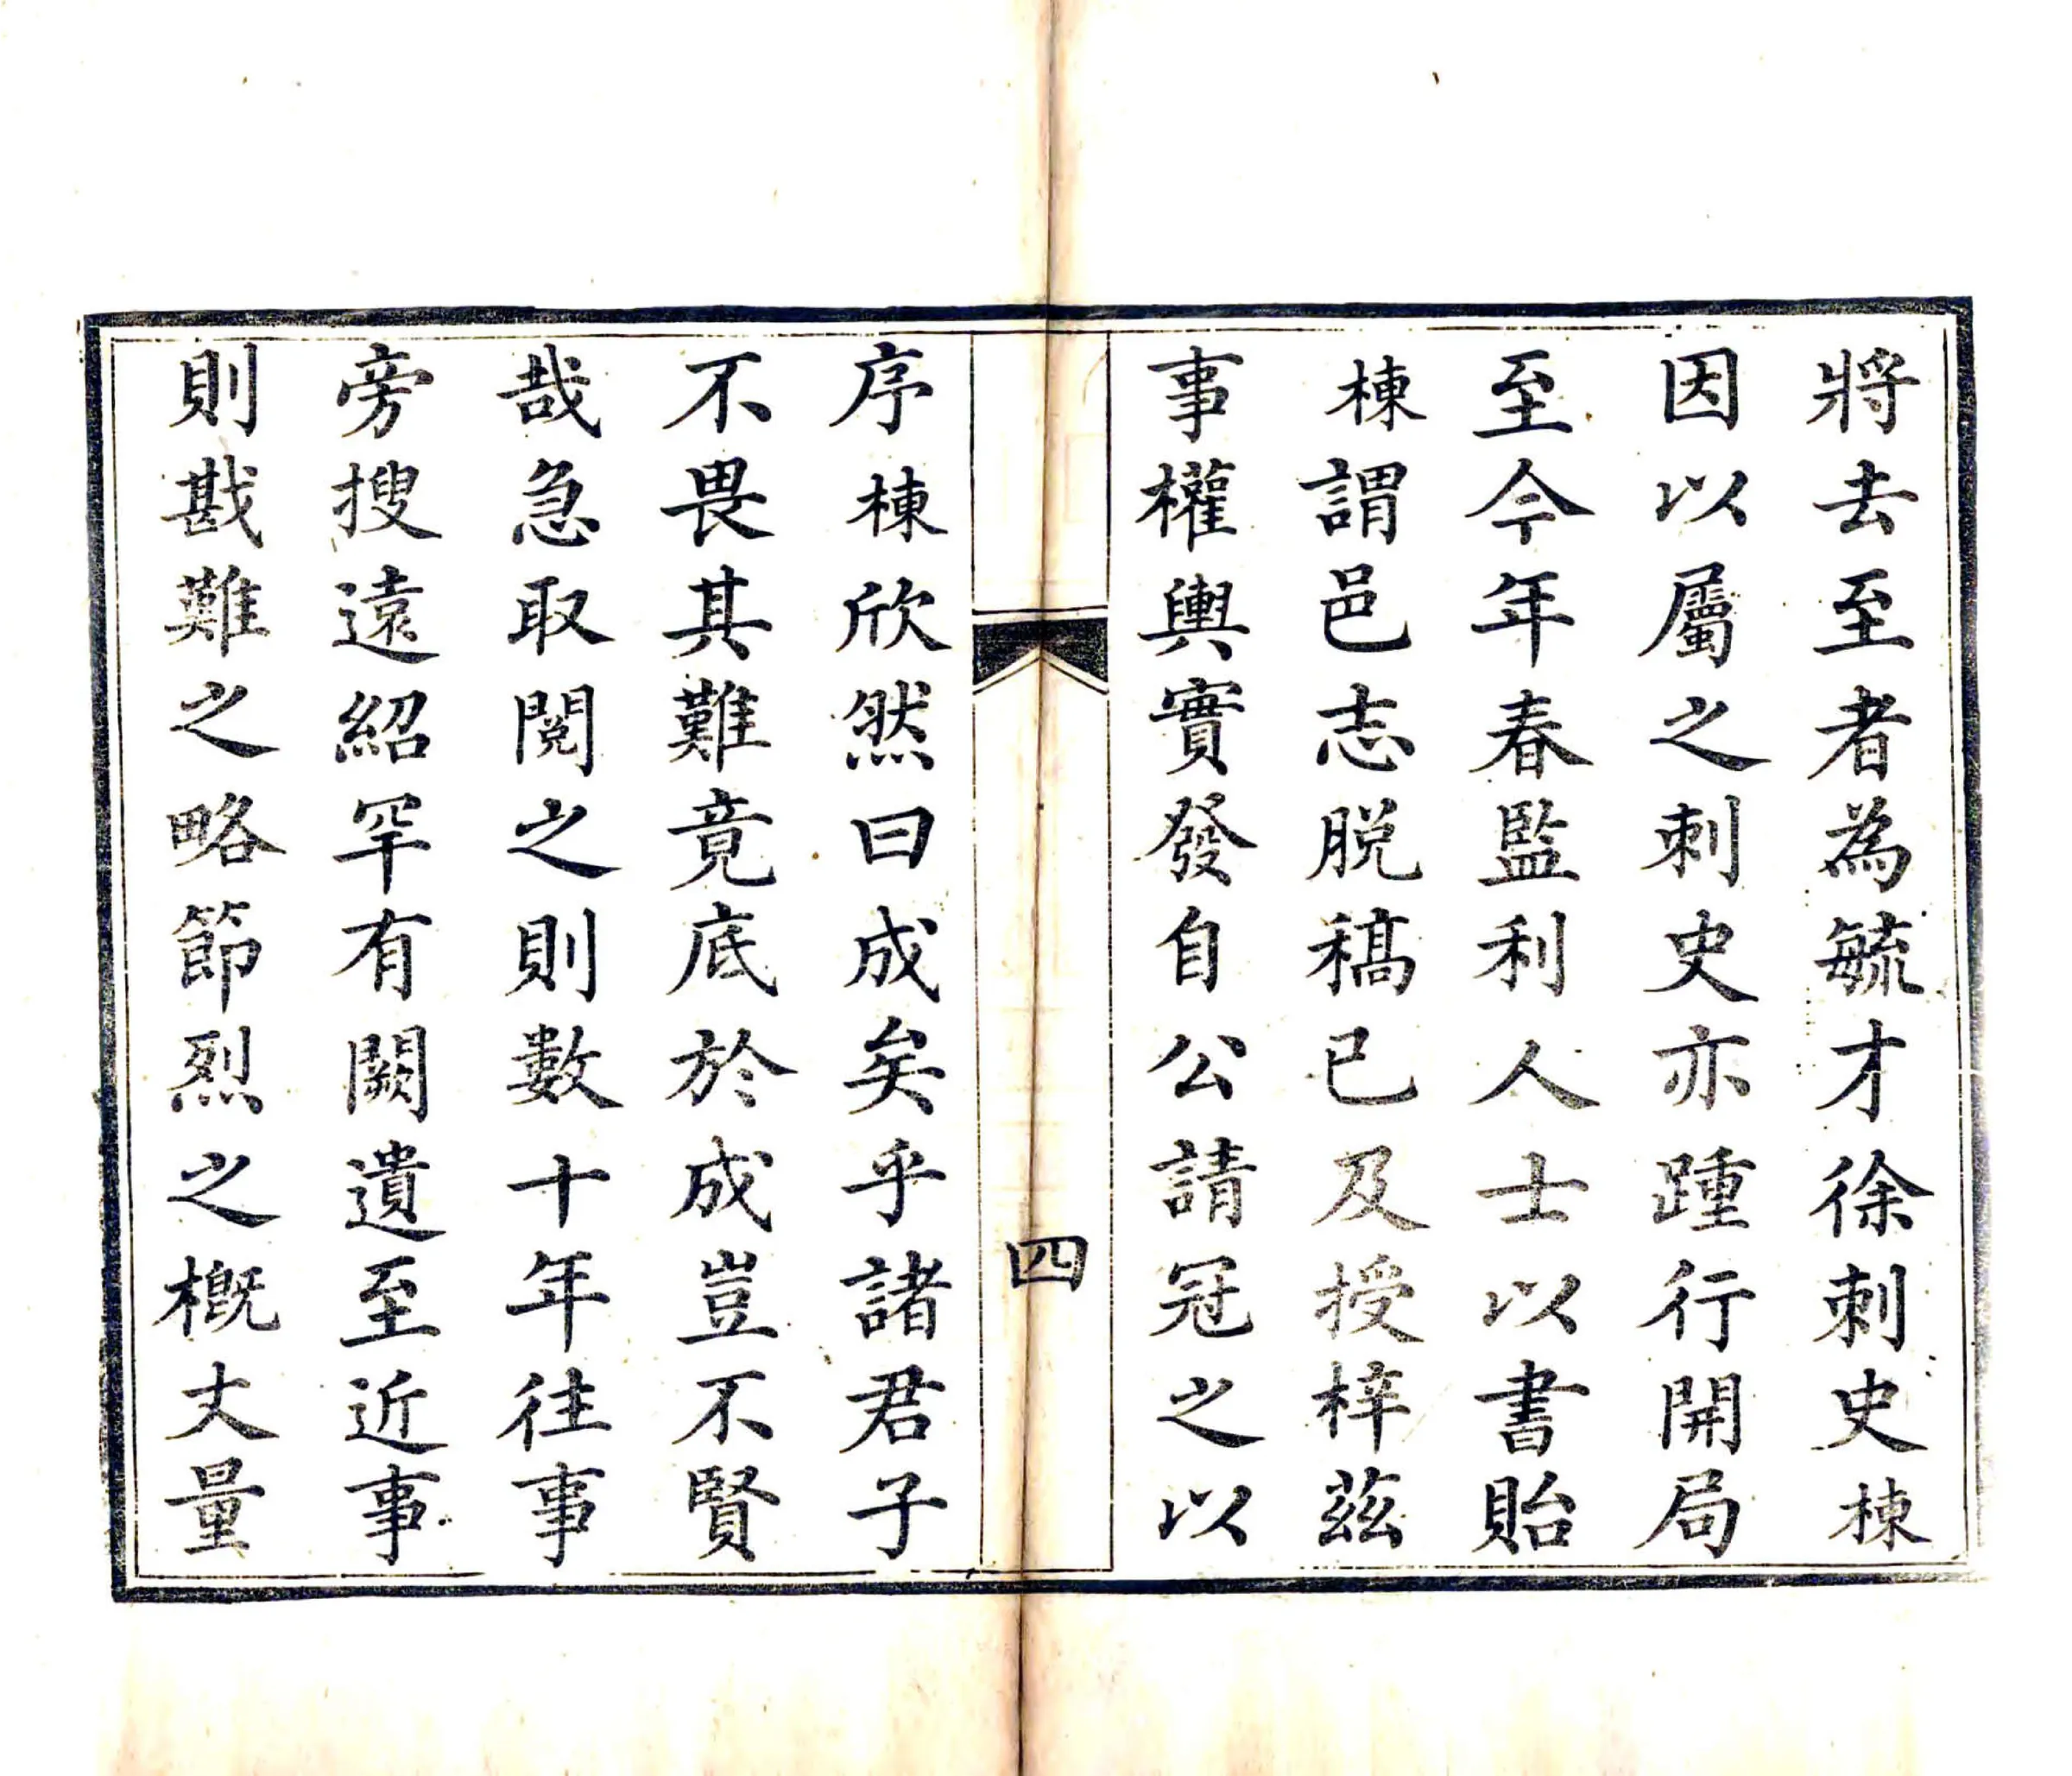 將去至者為毓才徐刺史棟
因以屬之刺史亦踵行開局
至今年春監利人士以書貽
棟謂邑志脫稿已及授梓茲
事權輿實發自公請冠之以
四
序棟欣然曰成矣乎諸君子
不畏其難竟底於成豈不賢
哉急取閱之則數十年往事
旁搜遠紹罕有闕遺至近事
則戡難之略節烈之概丈量